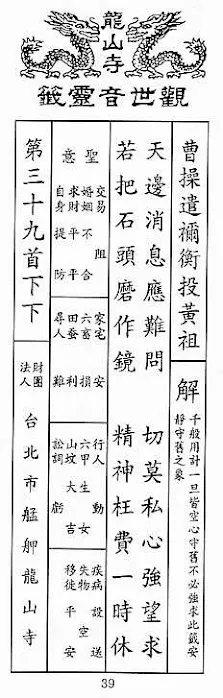 龍山寺
觀世音靈籤
曹操遣禰衡投黃祖
解
千般用計一旦皆空心守舊不必強求此籤安
靜守舊之象
天邊消息應難問 切莫私心強望求
若把石頭磨作鏡 精神枉費一時休
聖意
交易 阻
婚姻 不合
求財 平平
自身 提防
家宅 安
六畜 損
田蚕 利
尋人 難
行人 動
六甲 生女
山坟 大吉
訟詞 虧
疾病 設送
失物 空
移徙 平安
第三十九首下下
財團法人 台北市艋舺龍山寺
39